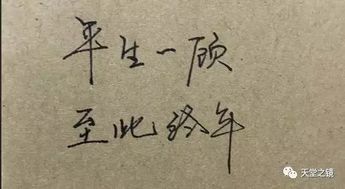 平生一顾
至此终年
天堂之镜